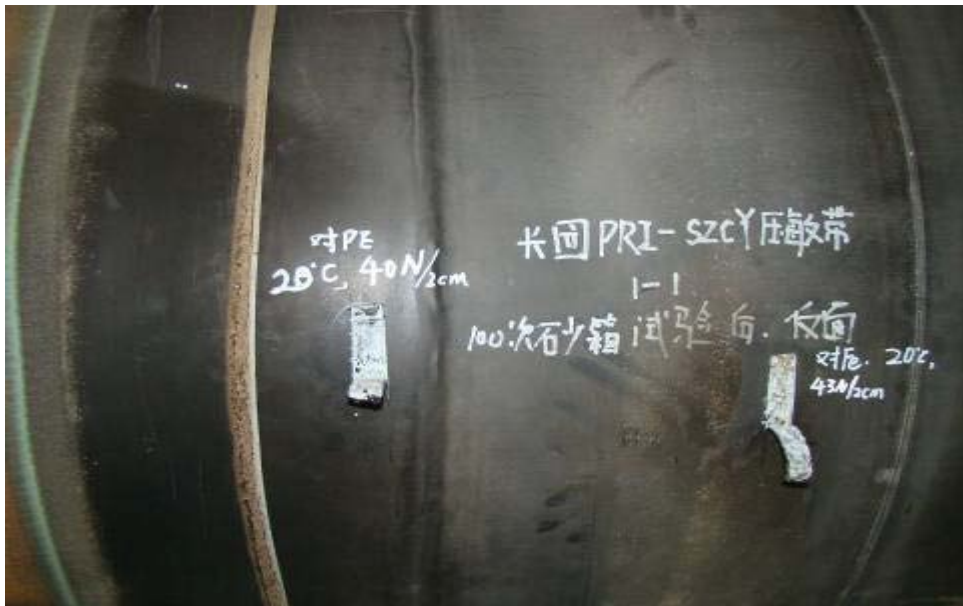 对PE
20℃, 40N/2cm
长园PRI-SZCY压敏带
1-1
100次砂箱试验后.反面
对PE. 20℃,
43N/2cm